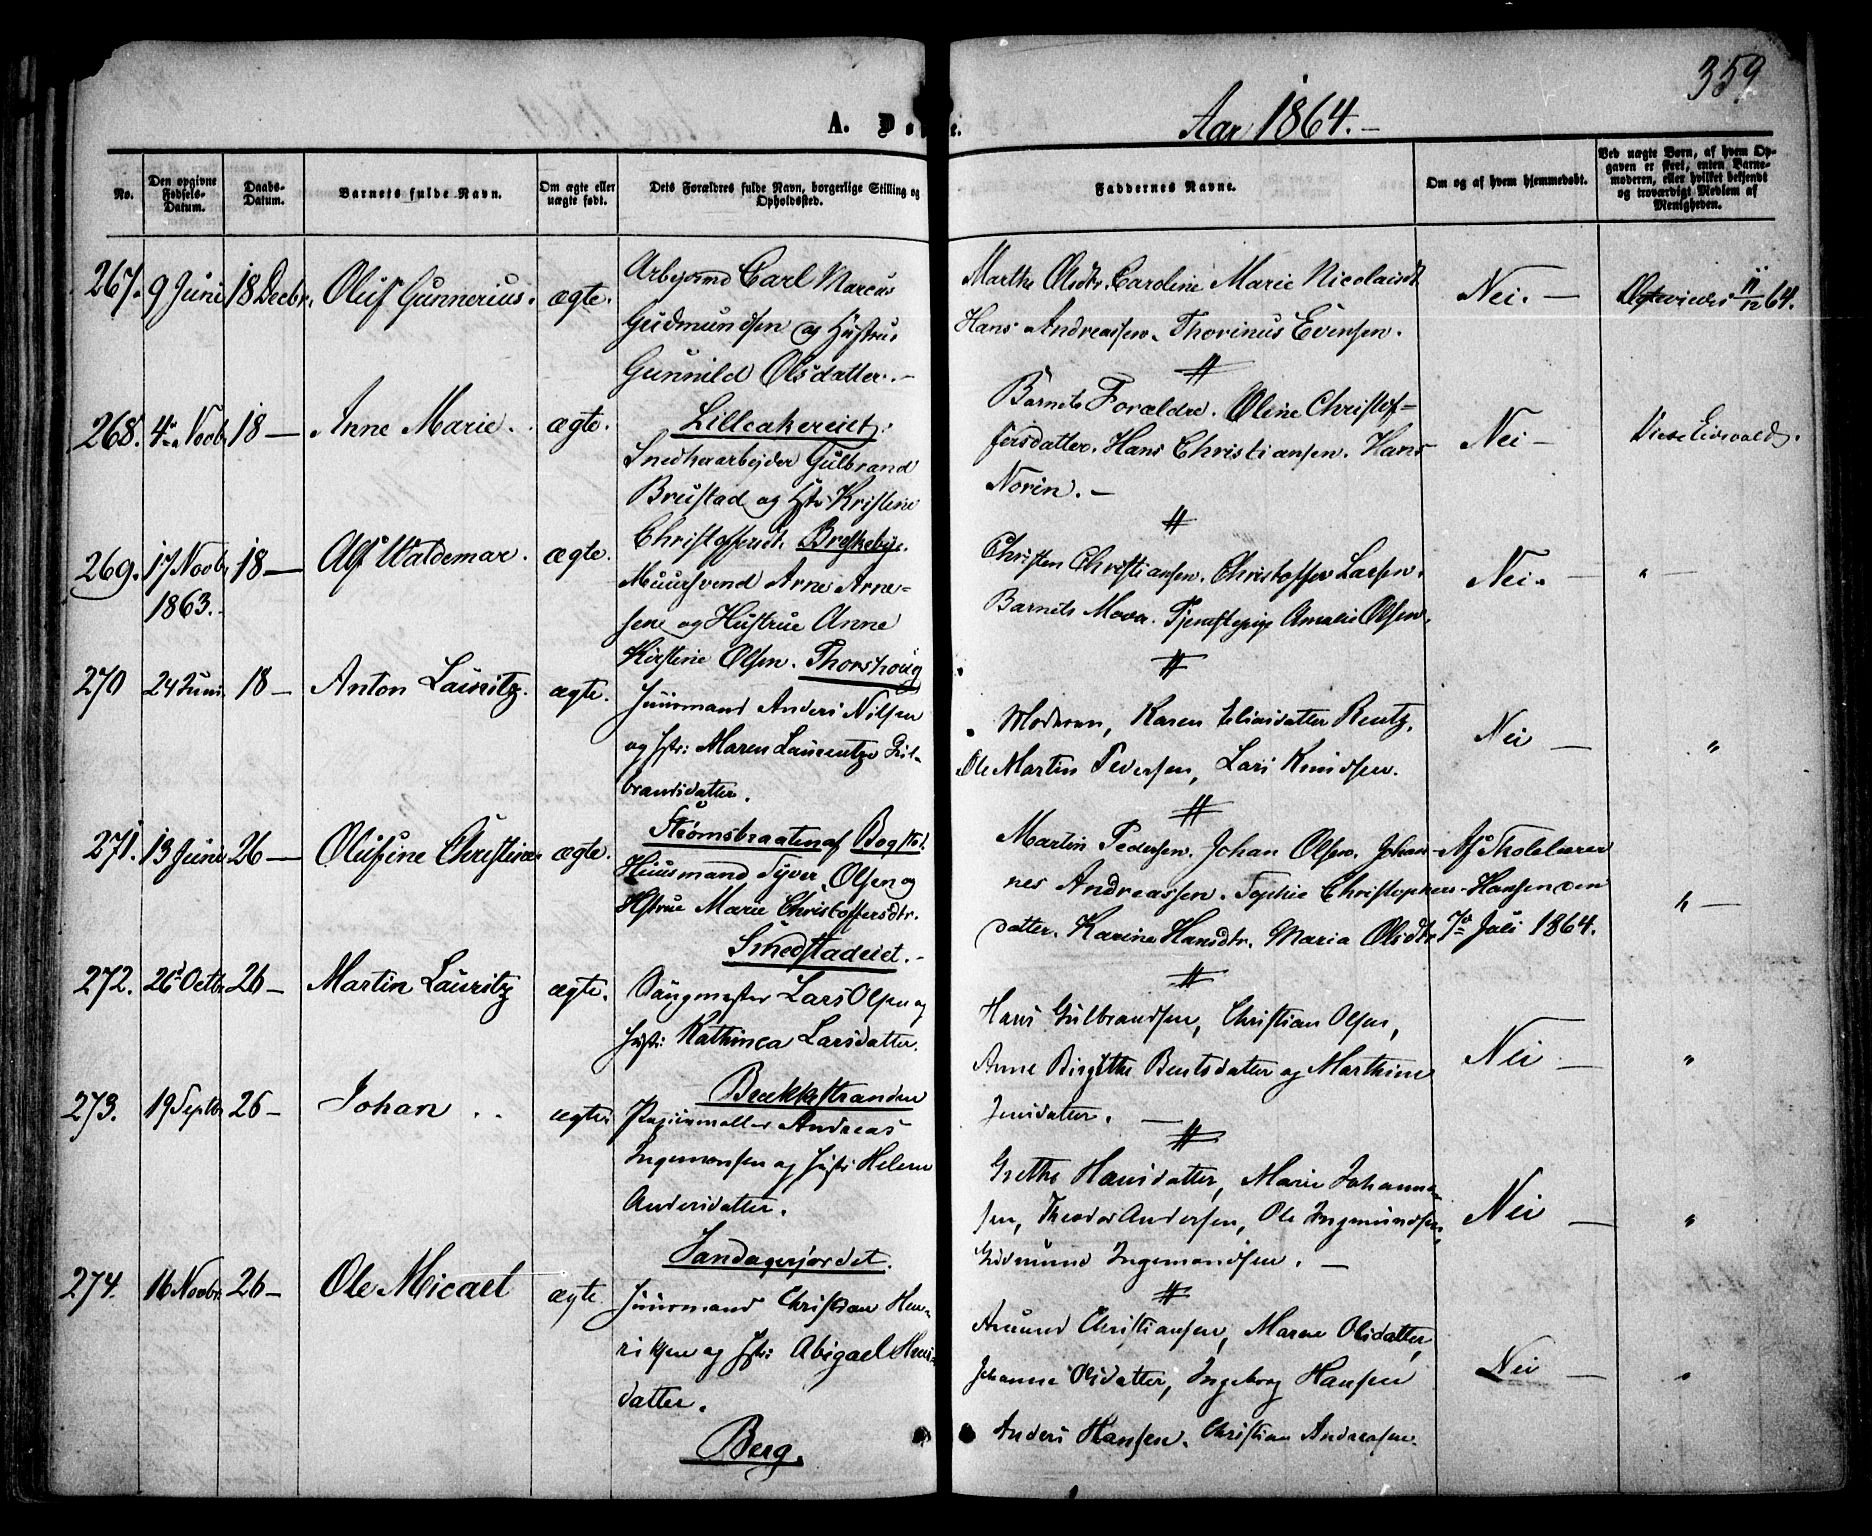 359
A. D
e.
Aar 1864.-
No.
Den opgivne Fødsels-Datum.
Daabs-Datum.
Barnets fulde Navn.
Om ægte eller uægte født.
Dets Forældres fulde Navn, borgerlige Stilling og Opholdssted.
Faddernes Navne.
Om og af hvem hjemmedøbt.
Ved uægte Børn, af hvem Opgaven er skeet, enten Barnemoderen, eller hvilket bekjendt og troværdigt Medlem af Menigheden.
267. 9 Juni 18 Decbr. Oluf Gunnerius. ægte.
Arbejdsmd Carl Marcus
Gudmundsen og Hustrue
Gunnild Olsdatter. -
Lilleakereiet.
Marthe Olsdtr. Caroline Marie Nicolaisdt.
Hans Andreassen. Thorinus Evensen.
Nei. -
11/12 64.
268. 4de Novbr 18 - Anne Marie. ægte.
Snedkerarbejder Gulbrand
Brustad og Hstr. Kristine
Christoffersdt. Briskebye.
Barnets Forældre. Oline Christof-
fersdatter. Hans Christiansen. Hans
Norin. -
Nei -
Eidsvold.
269. 17 Novbr 1863. 18 - Alf Waldemar. ægte.
Muursvend Arne Arne-
sen og Hustrue Anne
Kirstine Olsen. Thorshoug
Christen Christiansen. Christoffer Larsen.
Barnets Moder. Tjenestepige Amalie Olsen.
Nei. -
" -
270 24 Juni. 18 - Anton Lauritz. ægte.
Huusmand Anders Nilsen
og Hstr: Maren Laurentze Gul-
brandsdatter.
Strømsbraaten af Bogstad.
Moderen, Karen Eliasdatter Bentz,
Ole Martin Pedersen, Lars Knudsen.
Nei -
"
271. 13 Juni 26 - Olufine Christine ægte.
Huusmand Syver Olsen og
Hstrue Marie Christoffersdtr.
Smedstadeiet. -
Martin Pedersen. Johan Olsen. Johan-
nes Andreassen. Sophie Christophers-
datter. Karine Hansdtr. Maria Olsdtr.
Af Skolelærer
Hansen den
7de Juli 1864.
" -
272. 26de Octbr 26 - Martin Lauritz ægte.
Saugmester Lars Olsen og
Hstr: Kathinca Larsdatter.
Bækkestranden
Hans Gulbrandsen, Christian Olsen,
Anne Birgithe Bentsdatter og Marthine
Jensdatter. -
Nei -
"
273. 19 Septbr 26 - Johan ægte.
Andreas
Ingemansen og Hstr: Helene
Andersdatter.
Sandagerjordet.
Grethe Hansdatter, Marie Johanne-
sen, Theodor Andersen, Ole Ingemundsen,
Gudmund Ingemandsen. -
Nei -
"
274. 16 Novbr. 26 - Ole Micael ægte
Huusmand Christian Hen-
riksen og Hstr: Abigael Hans-
datter.
Berg.
Christiansen, Maren Olsdatter,
Johanne Olsdatter, Ingeborg Hansen
Anders Hansen. Christian Andreasen.
Nei -
"